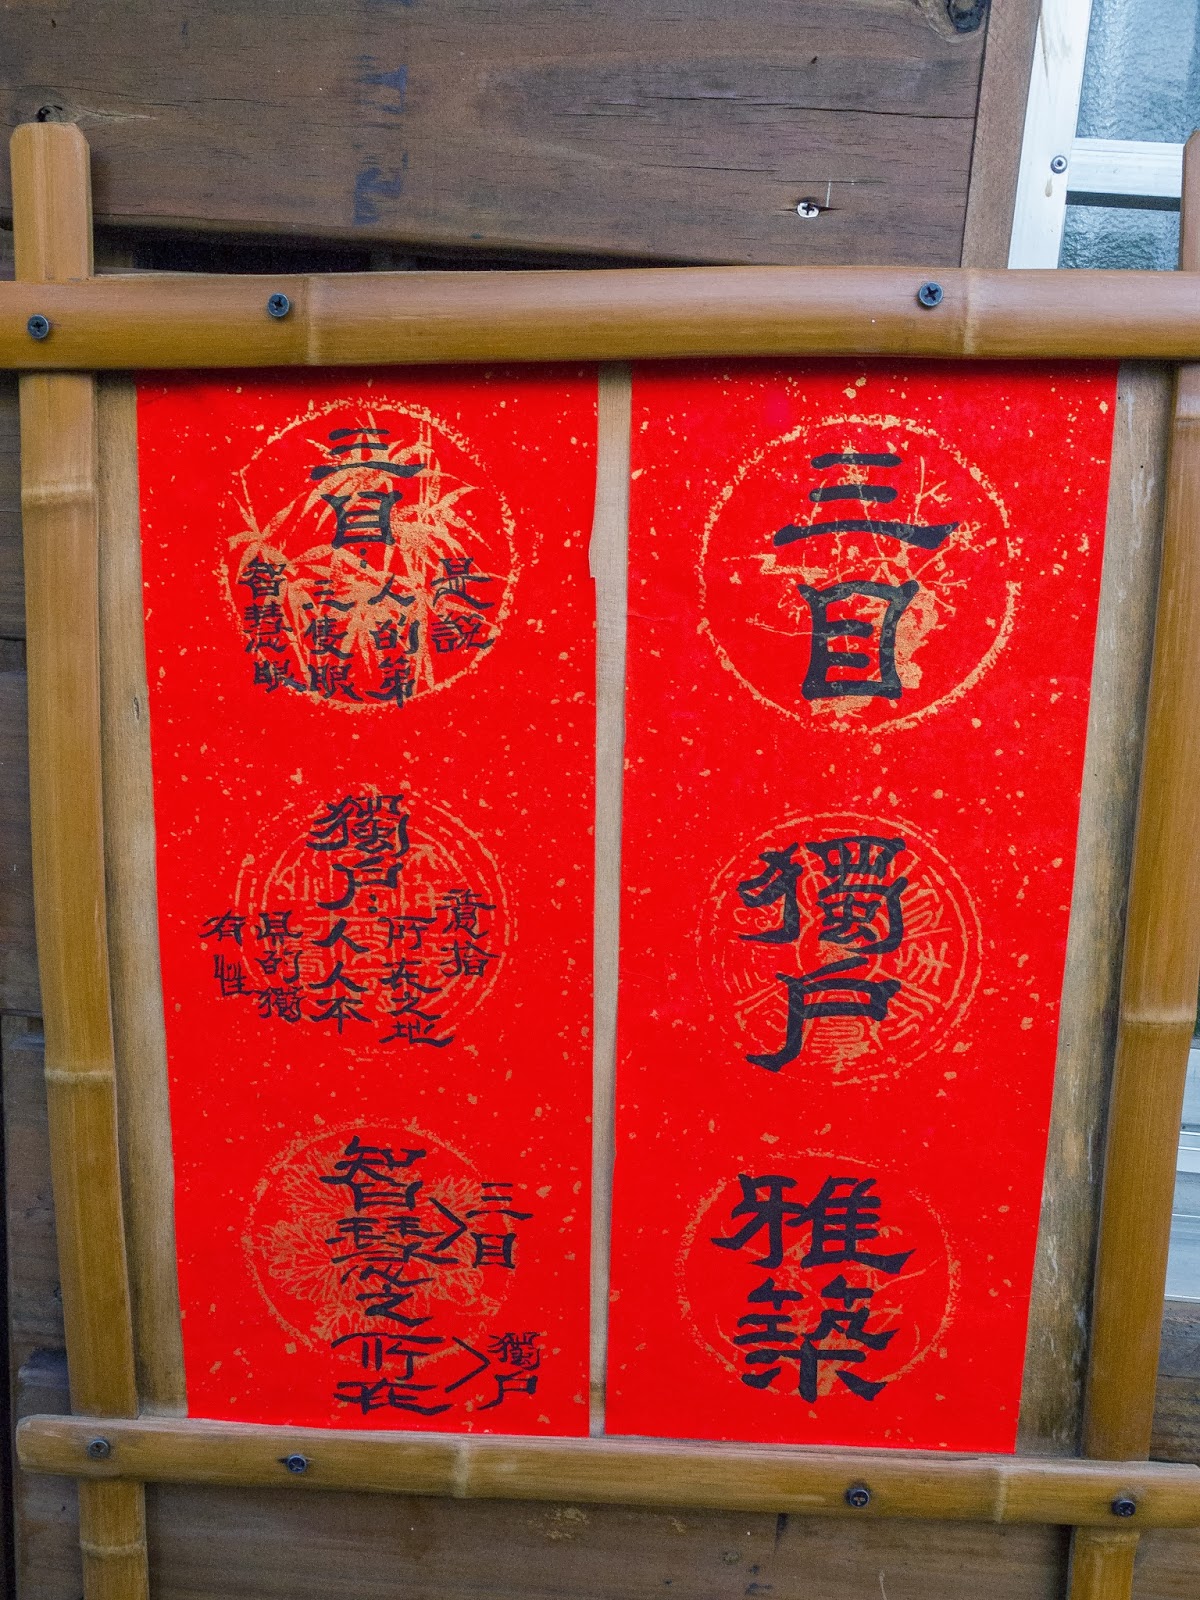 三目
獨戶
雅築
三目：
是說
人的第
三隻眼
智慧眼
獨戶：
拾
所在之地
人人本
具的獨
有性
智慧之所在
三目
獨戶